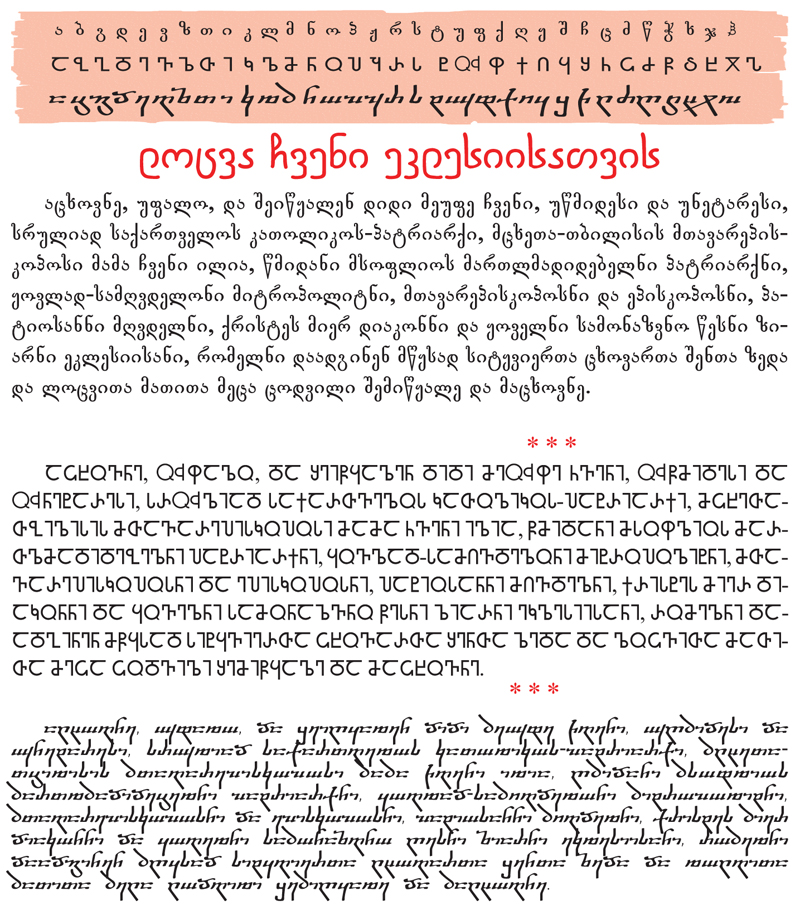 ა ბ გ დ ე ვ ზ თ ი კ ლ მ ნ ო პ ჟ რ ს ტ უ ფ ქ ღ ყ შ ჩ ც ძ წ ჭ ხ ჯ ჰ
Ⴀ Ⴁ Ⴂ Ⴃ Ⴄ Ⴅ Ⴆ Ⴇ Ⴈ Ⴉ Ⴊ Ⴋ Ⴌ Ⴍ Ⴎ Ⴏ Ⴐ Ⴑ Ⴒ ႭჃ Ⴔ Ⴕ Ⴖ Ⴗ Ⴘ Ⴙ Ⴚ Ⴛ Ⴜ Ⴝ Ⴞ Ⴟ Ⴠ
ლოცვა ჩვენი ეკლესიისათვის
აცხოვნე, უფალო, და შეიწყალენ დიდი მეუფე ჩვენი, უწმიდესი და უნეტარესი,
სრულიად საქართველოს კათოლიკოს-პატრიარქი, მცხეთა-თბილისის მთავარეპის-
კოპოსი მამა ჩვენი ილია, წმიდანი მსოფლიოს მართლმადიდებელნი პატრიარქნი,
ყოვლად-სამღვდელონი მიტროპოლიტნი, მთავარეპისკოპოსნი და ეპისკოპოსნი, პა-
ტიოსანნი მღვდელნი, ქრისტეს მიერ დიაკონნი და ყოველნი სამონაზვნო წესნი ზი-
არნი ეკლესიისანი, რომელნი დაადგინენ მწყსად სიტყვიერთა ცხოვართა შენთა ზედა
და ლოცვითა მათითა მეცა ცოდვილი შემიწყალე და მაცხოვნე.
* * *
ႠႺႾႭႥႬႤ, ႭჃႴႠႪႭ, ႣႠ ႸႤႨႼႷႠႪႤႬ ႣႨႣႨ ႫႤႭჃႴႤ ႹႥႤႬႨ, ႭჃႼႫႨႣႤႱႨ ႣႠ
ႭჃႬႤႲႠႰႤႱႨ, ႱႰႭჃႪႨႠႣ ႱႠႵႠႰႧႥႤႪႭႱ ႩႠႧႭႪႨႩႭႱ-ႮႠႲႰႨႠႰႵႨ, ႫႺႾႤႧႠ-
ႧႡႨႪႨႱႨႱ ႫႧႠႥႠႰႤႮႨႱႩႭႮႭႱႨ ႫႠႫႠ ႹႥႤႬႨ ႨႪႨႠ, ႼႫႨႣႠႬႨ ႫႱႭႴႪႨႭႱ ႫႠႰ-
ႧႪႫႠႣႨႣႤႡႤႪႬႨ ႮႠႲႰႨႠႰႵႬႨ, ႷႭႥႪႠႣ-ႱႠႫႶႥႣႤႪႭႬႨ ႫႨႲႰႭႮႭႪႨႲႬႨ, ႫႧႠ-
ႥႠႰႤႮႨႱႩႭႮႭႱႬႨ ႣႠ ႤႮႨႱႩႭႮႭႱႬႨ, ႮႠႲႨႭႱႠႬႬႨ ႫႶႥႣႤႪႬႨ, ႵႰႨႱႲႤႱ ႫႨႤႰ ႣႨ-
ႠႩႭႬႬႨ ႣႠ ႷႭႥႤႪႬႨ ႱႠႫႭႬႠႦႥႬႭ ႼႤႱႬႨ ႦႨႠႰႬႨ ႤႩႪႤႱႨႨႱႠႬႨ, ႰႭႫႤႪႬႨ ႣႠ-
ႠႣႢႨႬႤႬ ႫႼႷႱႠႣ ႱႨႲႷႥႨႤႰႧႠ ႺႾႭႥႠႰႧႠ ႸႤႬႧႠ ႦႤႣႠ ႣႠ ႪႭႺႥႨႧႠ ႫႠႧႨ-
ႧႠ ႫႤႺႠ ႺႭႣႥႨႪႨ ႸႤႫႨႼႷႠႪႤ ႣႠ ႫႠႺႾႭႥႬႤ.
* * *
ⴀⴚⴞⴍⴅⴌⴄ, ⴍⴣⴔⴀⴊⴍ, ⴃⴀ ⴘⴄⴈⴜⴗⴀⴊⴄⴌ ⴃⴈⴃⴈ ⴋⴄⴍⴣⴔⴄ ⴙⴅⴄⴌⴈ, ⴍⴣⴜⴋⴈⴃⴄⴑⴈ ⴃⴀ
ⴍⴣⴌⴄⴒⴀⴐⴄⴑⴈ, ⴑⴐⴍⴣⴊⴈⴀⴃ ⴑⴀⴕⴀⴐⴇⴅⴄⴊⴍⴑ ⴉⴀⴇⴍⴊⴈⴉⴍⴑ-ⴎⴀⴒⴐⴈⴀⴐⴕⴈ, ⴋⴚⴞⴄⴇⴀ-
ⴇⴁⴈⴊⴈⴑⴈⴑ ⴋⴇⴀⴅⴀⴐⴄⴎⴈⴑⴉⴍⴎⴍⴑⴈ ⴋⴀⴋⴀ ⴙⴅⴄⴌⴈ ⴈⴊⴈⴀ, ⴜⴋⴈⴃⴀⴌⴈ ⴋⴑⴍⴔⴊⴈⴍⴑ
ⴋⴀⴐⴇⴊⴋⴀⴃⴈⴃⴄⴁⴄⴊⴌⴈ ⴎⴀⴒⴐⴈⴀⴐⴕⴌⴈ, ⴗⴍⴅⴊⴀⴃ-ⴑⴀⴋⴖⴅⴃⴄⴊⴍⴌⴈ ⴋⴈⴒⴐⴍⴎⴍⴊⴈⴒⴌⴈ,
ⴋⴇⴀⴅⴀⴐⴄⴎⴈⴑⴉⴍⴎⴍⴑⴌⴈ ⴃⴀ ⴄⴎⴈⴑⴉⴍⴎⴍⴑⴌⴈ, ⴎⴀⴒⴈⴍⴑⴀⴌⴌⴈ ⴋⴖⴅⴃⴄⴊⴌⴈ, ⴕⴐⴈⴑⴒⴄⴑ ⴋⴈⴄⴐ
ⴃⴈⴀⴉⴍⴌⴌⴈ ⴃⴀ ⴗⴍⴅⴄⴊⴌⴈ ⴑⴀⴋⴍⴌⴀⴆⴅⴌⴍ ⴜⴄⴑⴌⴈ ⴆⴈⴀⴐⴌⴈ ⴄⴉⴊⴄⴑⴈⴈⴑⴀⴌⴈ, ⴐⴍⴋⴄⴊⴌⴈ
ⴃⴀⴀⴃⴂⴈⴌⴄⴌ ⴋⴜⴗⴑⴀⴃ ⴑⴈⴒⴗⴅⴈⴄⴐⴇⴀ ⴚⴞⴍⴅⴀⴐⴇⴀ ⴘⴄⴌⴇⴀ ⴆⴄⴃⴀ ⴃⴀ ⴊⴍⴚⴅⴈⴇⴀ
ⴋⴀⴇⴈⴇⴀ ⴋⴄⴚⴀ ⴚⴍⴃⴅⴈⴊⴈ ⴘⴄⴋⴈⴜⴗⴀⴊⴄ ⴃⴀ ⴋⴀⴚⴞⴍⴅⴌⴄ.